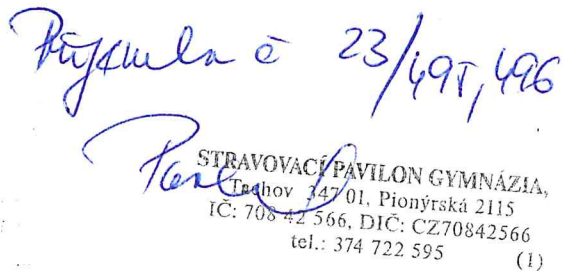 č 23/495,496
STRAVOVACÍ PAVILON GYMNÁZIA,
Tachov 347 01, Pionýrská 2115
IČ: 708 42 566, DIČ: CZ70842566
tel.: 374 722 595 (1)